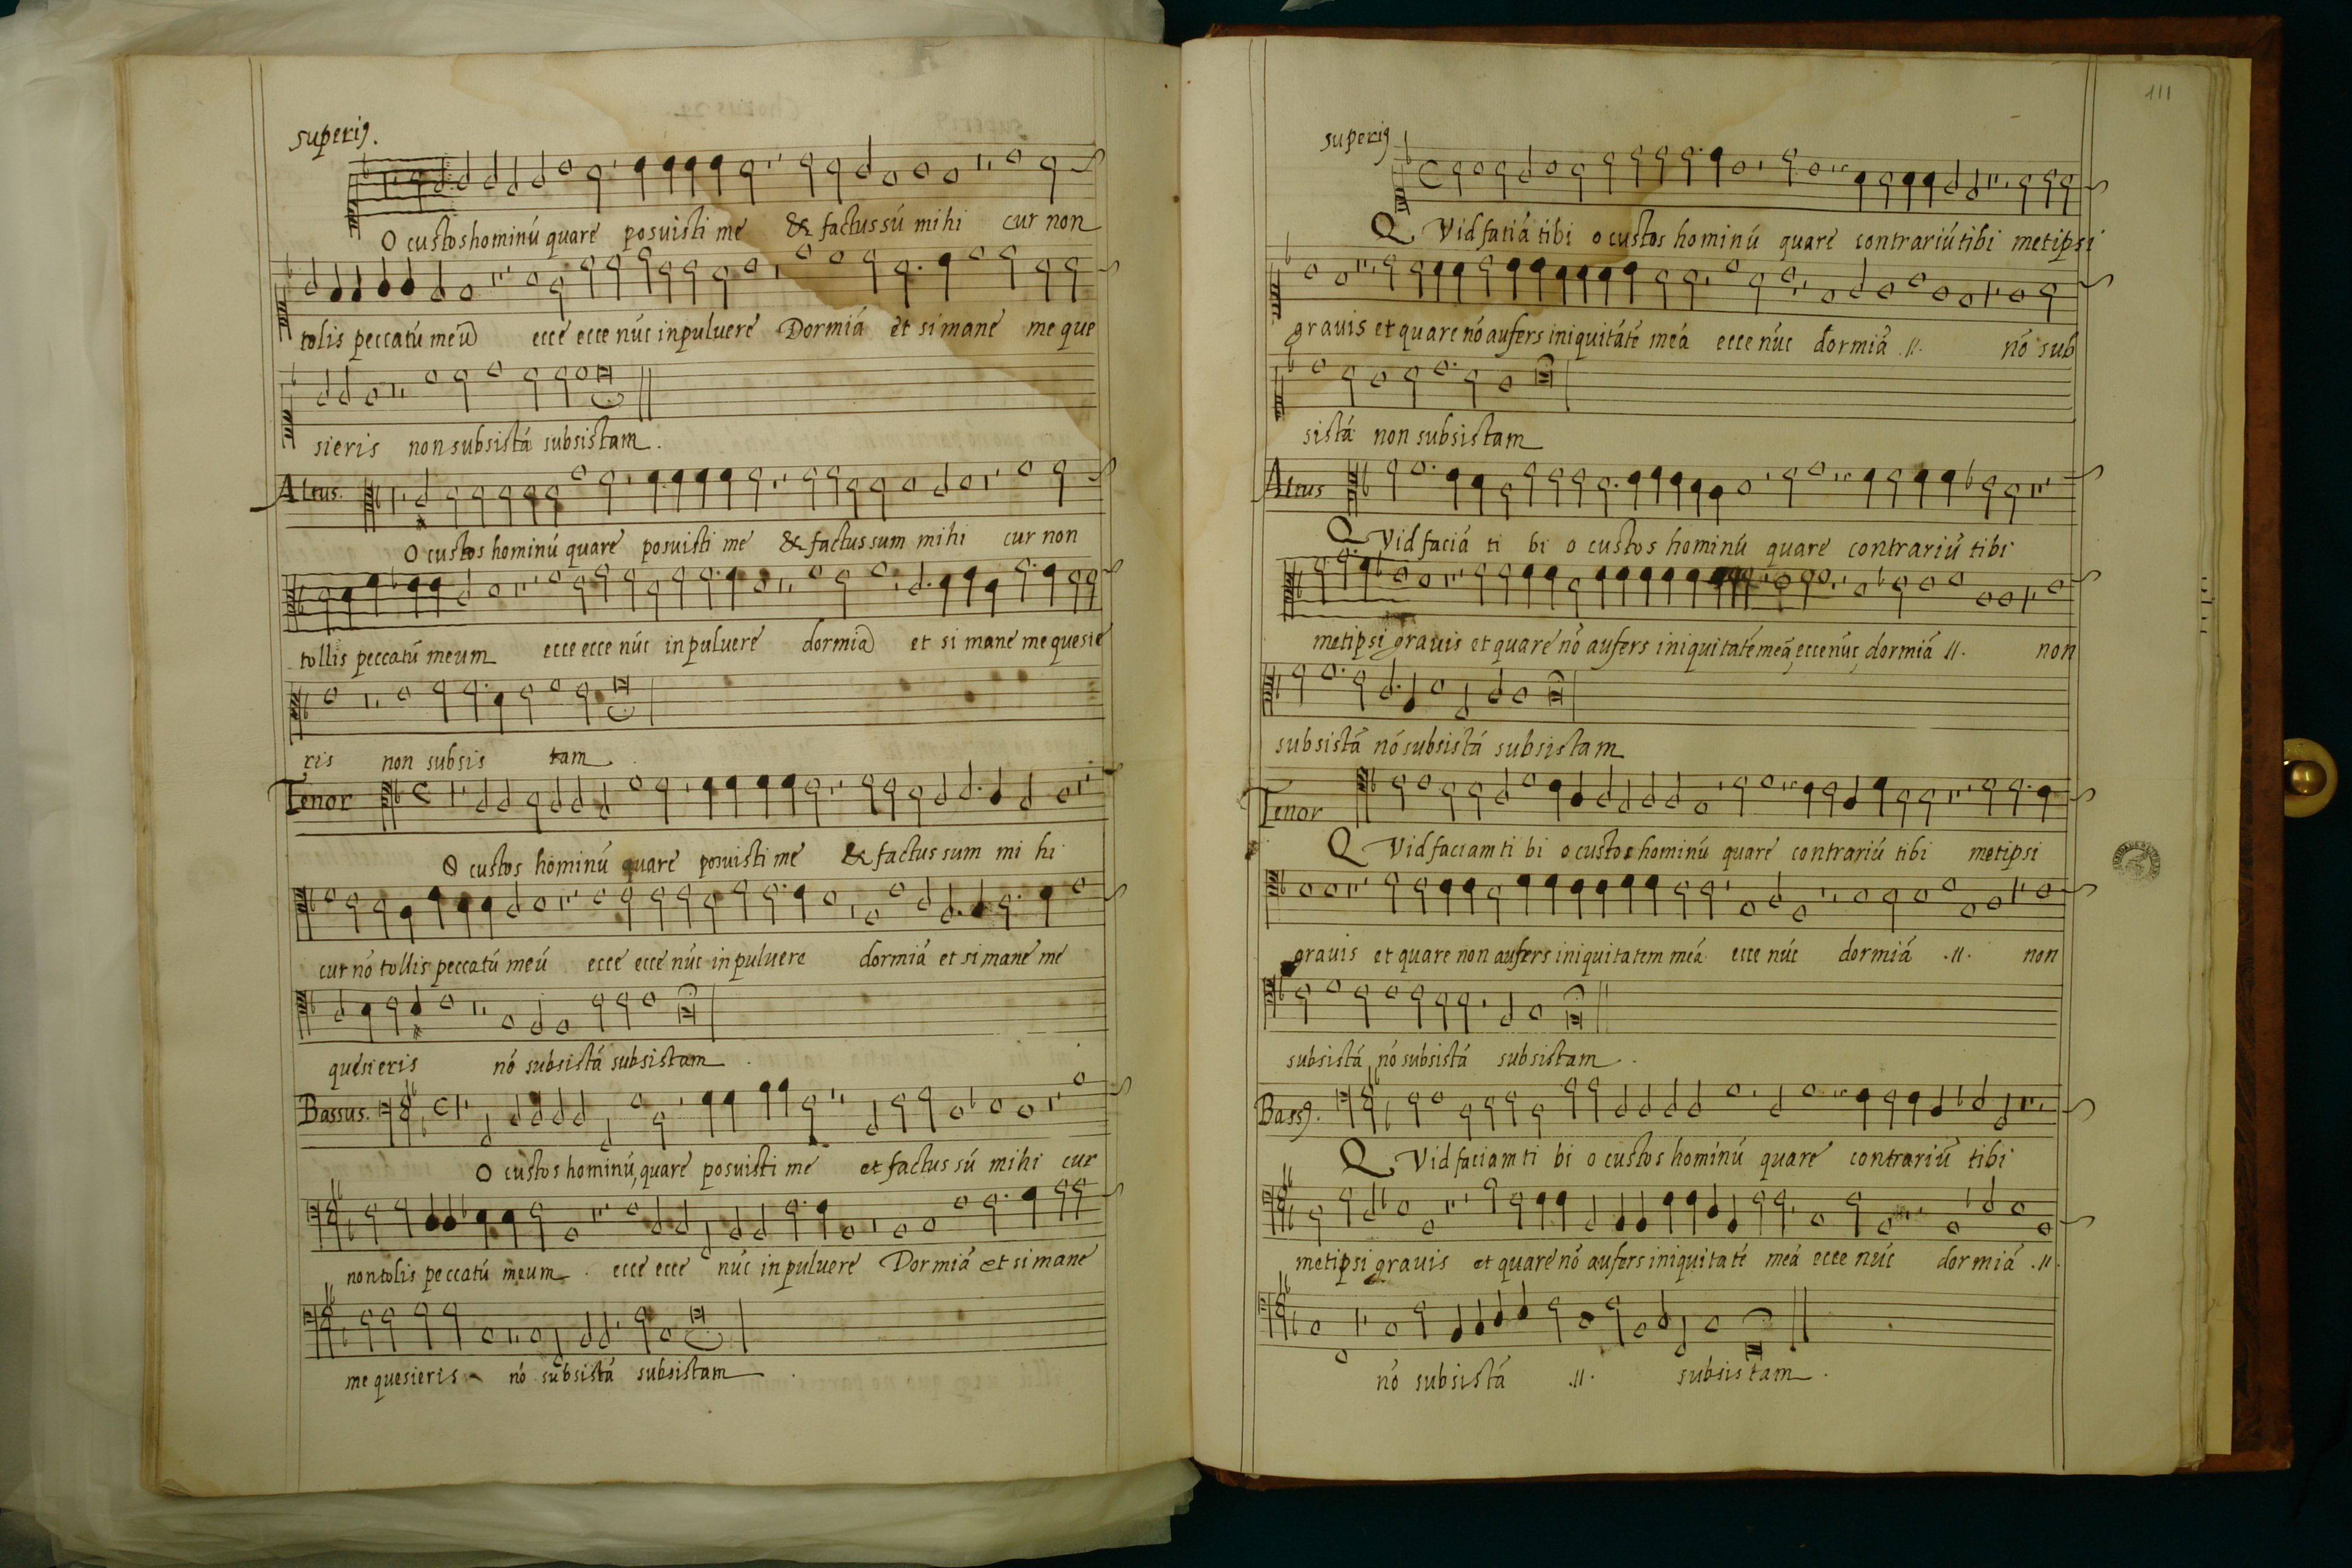 superiꝯ.
O custos hominú quare posuisti me & factus sú mihi cur non
tolis peccatú meú ecce ecce núc in puluere Dormiá et si mane me que
sieris non subsistá subsistam.
Altus.
O custos hominú quare posuisti me & factus sum mihi cur non
tollis peccatú meum ecce ecce núc in puluere dormiá et si mane me quesie
ris non subsis tam
Tenor
O custos hominú quare posuisti me & factus sum mi hi
cur nó tollis peccatú meú ecce ecce núc in puluere dormiá et si mane me
quesieris nó subsistá subsistam.
Bassus.
O custos hominú, quare posuisti me et factus sú mihi cur
non tolis peccatú meum. ecce ecce núc in puluere Dormiá et si mane
me quesieris nó subsistá subsistam.
111
superiꝯ
QVid faciá tibi o custos hominú quare contrariú tibi metipsi
grauis et quare nó aufers iniquitáte meá ecce núc dormiá .//. nó sub
sistá non subsistam
Altus
QVid faciá ti bi o custos hominú quare contrariú tibi
metipsi grauis et quare nó aufers iniquitaté meá, ecce núc, dormiá .//. non
subsistá nó subsistá subsistam
Tenor
QVid faciam ti bi o custos hominú quare contrariú tibi metipsi
grauis et quare non aufers iniquitatem meá ecce núc dormiá .//. non
subsistá, nó subsistá subsistam.
Bassꝯ.
QVid faciam ti bi o custos hominú quare contrariú tibi
metipsi grauis et quare nó aufers iniquitaté meá ecce núc dormiá .//.
nó subsistá .//. subsistam.